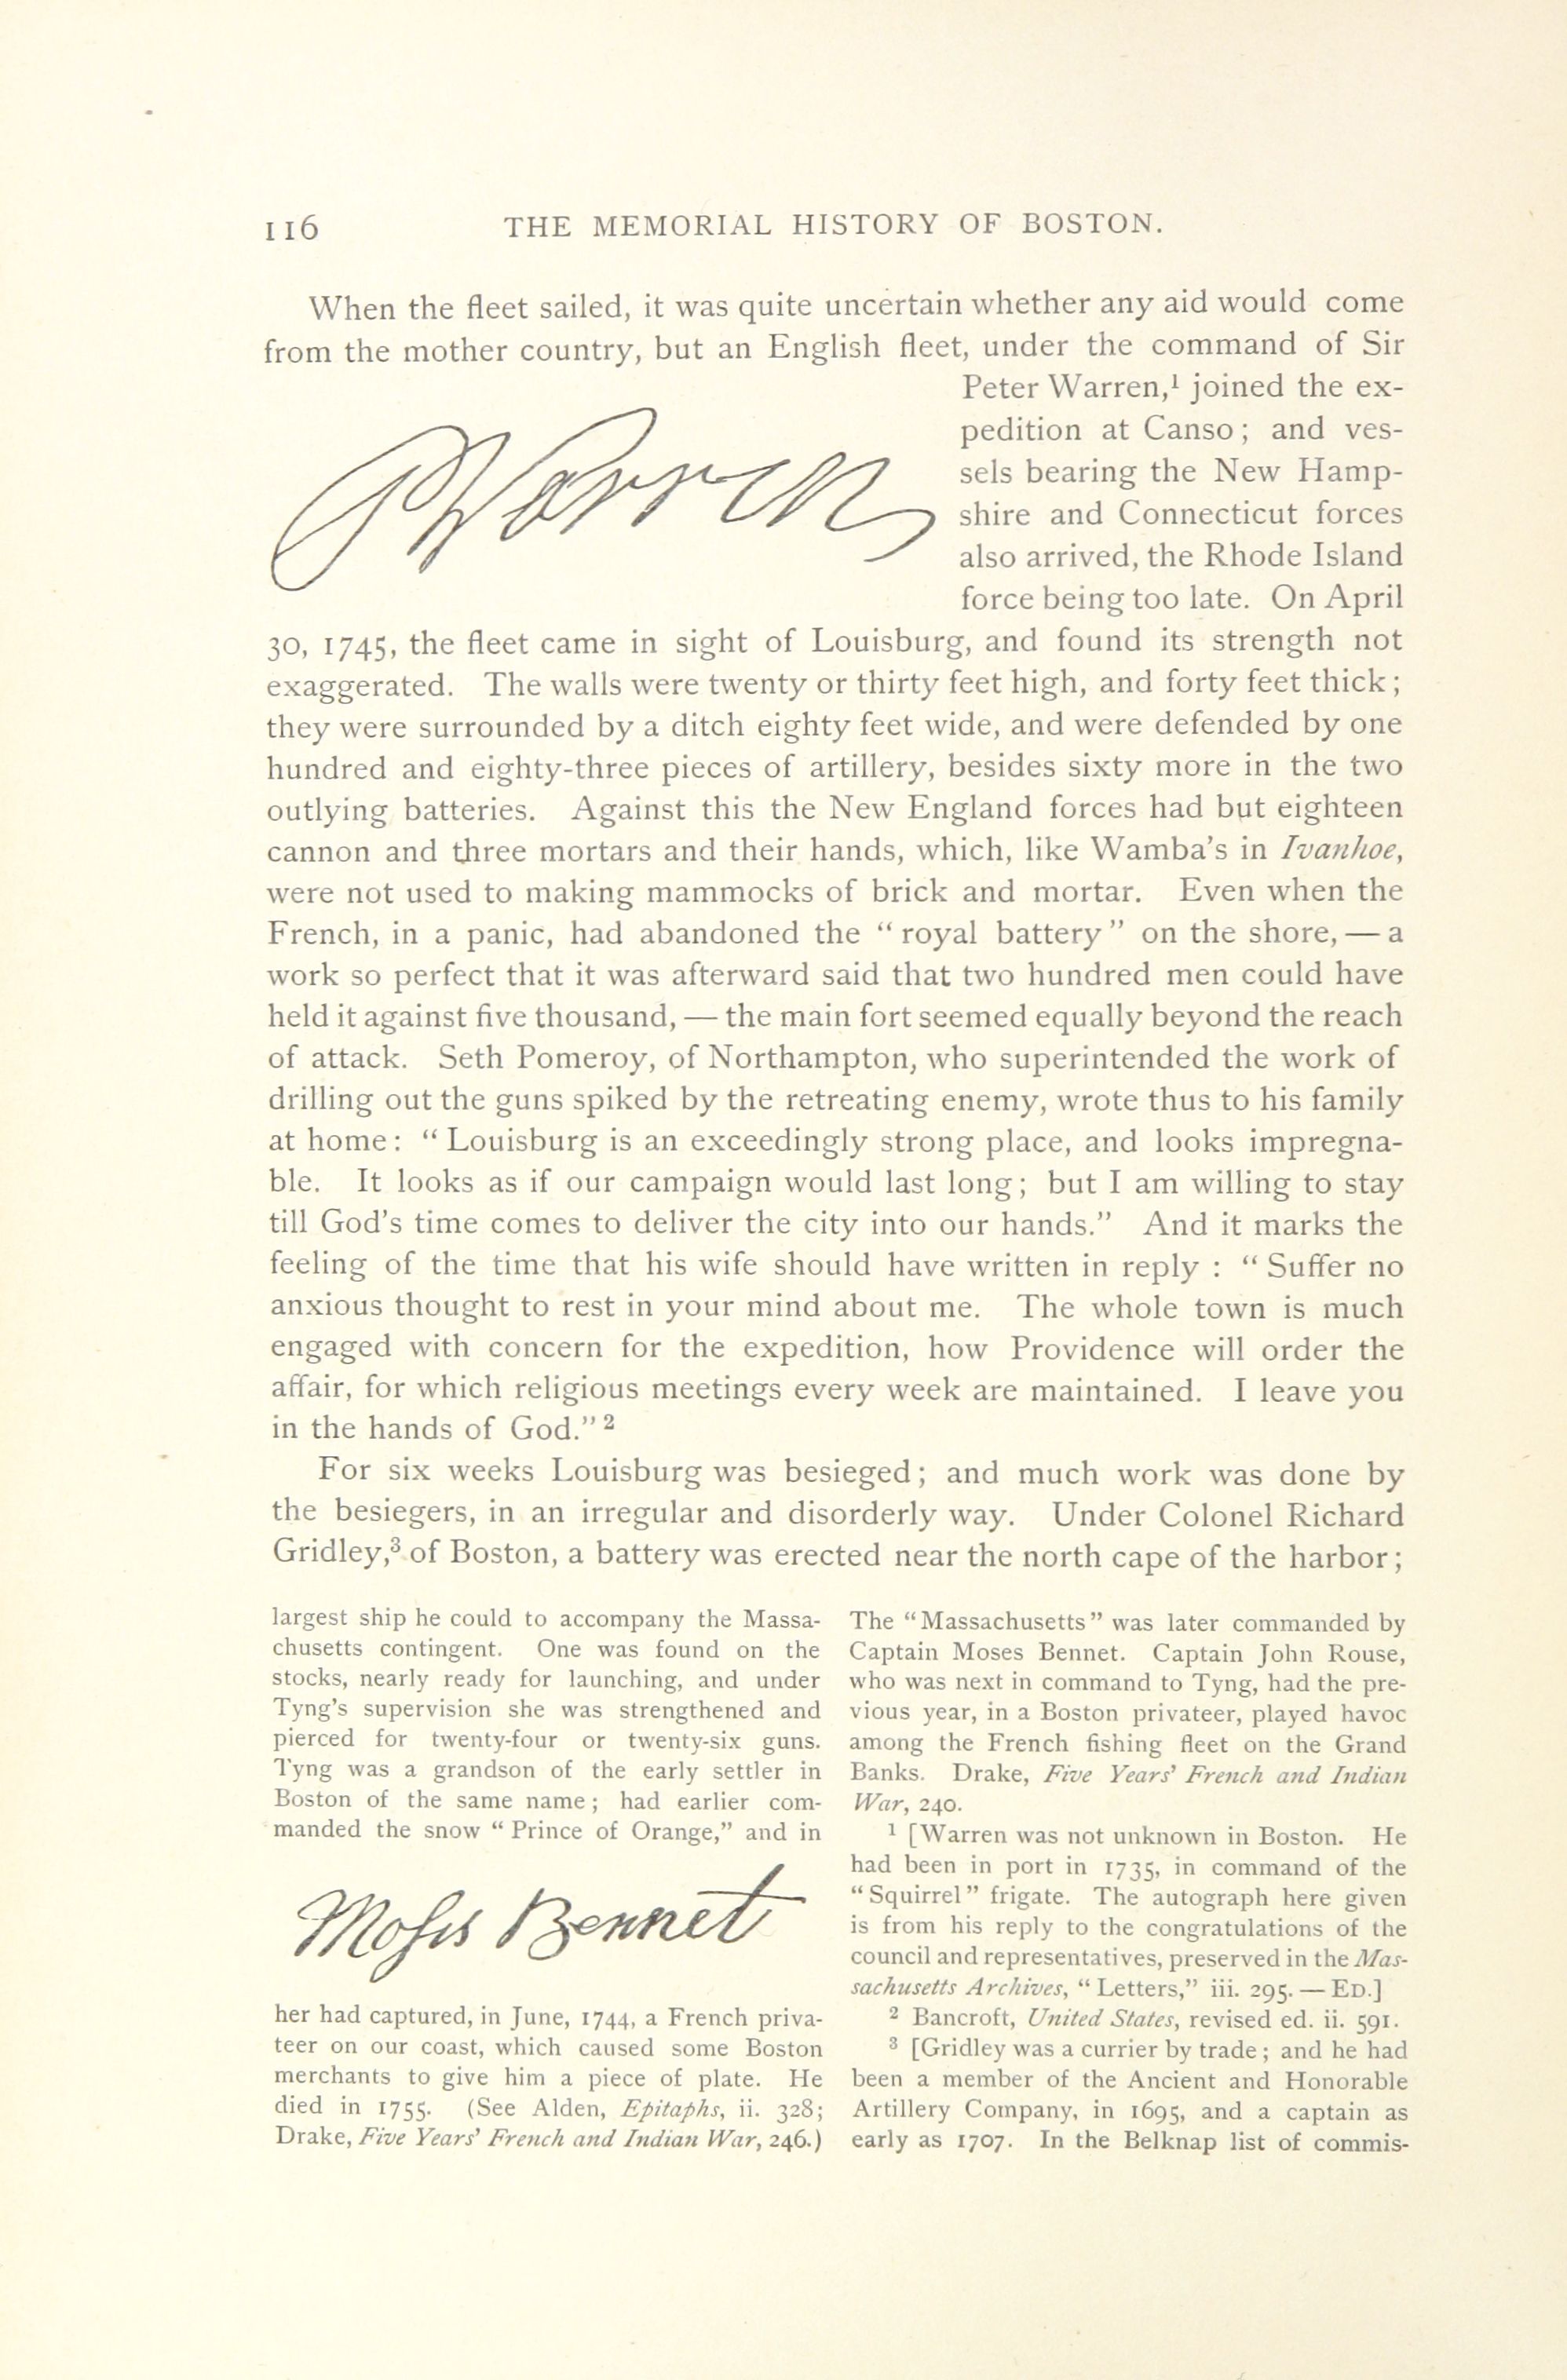 116 THE MEMORIAL HISTORY OF BOSTON.
When the fleet sailed, it was quite uncertain whether any aid would come
from the mother country, but an English fleet, under the command of Sir
Peter Warren,¹ joined the ex-
pedition at Canso; and ves-
sels bearing the New Hamp-
shire and Connecticut forces
also arrived, the Rhode Island
force being too late. On April
P Warren
30, 1745, the fleet came in sight of Louisburg, and found its strength not
exaggerated. The walls were twenty or thirty feet high, and forty feet thick;
they were surrounded by a ditch eighty feet wide, and were defended by one
hundred and eighty-three pieces of artillery, besides sixty more in the two
outlying batteries. Against this the New England forces had but eighteen
cannon and three mortars and their hands, which, like Wamba's in Ivanhoe,
were not used to making mammocks of brick and mortar. Even when the
French, in a panic, had abandoned the "royal battery" on the shore, — a
work so perfect that it was afterward said that two hundred men could have
held it against five thousand, — the main fort seemed equally beyond the reach
of attack. Seth Pomeroy, of Northampton, who superintended the work of
drilling out the guns spiked by the retreating enemy, wrote thus to his family
at home: "Louisburg is an exceedingly strong place, and looks impregna-
ble. It looks as if our campaign would last long; but I am willing to stay
till God's time comes to deliver the city into our hands." And it marks the
feeling of the time that his wife should have written in reply : "Suffer no
anxious thought to rest in your mind about me. The whole town is much
engaged with concern for the expedition, how Providence will order the
affair, for which religious meetings every week are maintained. I leave you
in the hands of God." ²
For six weeks Louisburg was besieged; and much work was done by
the besiegers, in an irregular and disorderly way. Under Colonel Richard
Gridley,³ of Boston, a battery was erected near the north cape of the harbor;
largest ship he could to accompany the Massa-
chusetts contingent. One was found on the
stocks, nearly ready for launching, and under
Tyng's supervision she was strengthened and
pierced for twenty-four or twenty-six guns.
Tyng was a grandson of the early settler in
Boston of the same name; had earlier com-
manded the snow "Prince of Orange," and in
Moses Bennet
her had captured, in June, 1744, a French priva-
teer on our coast, which caused some Boston
merchants to give him a piece of plate. He
died in 1755. (See Alden, Epitaphs, ii. 328;
Drake, Five Years' French and Indian War, 246.)
The "Massachusetts" was later commanded by
Captain Moses Bennet. Captain John Rouse,
who was next in command to Tyng, had the pre-
vious year, in a Boston privateer, played havoc
among the French fishing fleet on the Grand
Banks. Drake, Five Years' French and Indian
War, 240.
¹ [Warren was not unknown in Boston. He
had been in port in 1735, in command of the
"Squirrel" frigate. The autograph here given
is from his reply to the congratulations of the
council and representatives, preserved in the Mas-
sachusetts Archives, "Letters," iii. 295. — ED.]
² Bancroft, United States, revised ed. ii. 591.
³ [Gridley was a currier by trade; and he had
been a member of the Ancient and Honorable
Artillery Company, in 1695, and a captain as
early as 1707. In the Belknap list of commis-